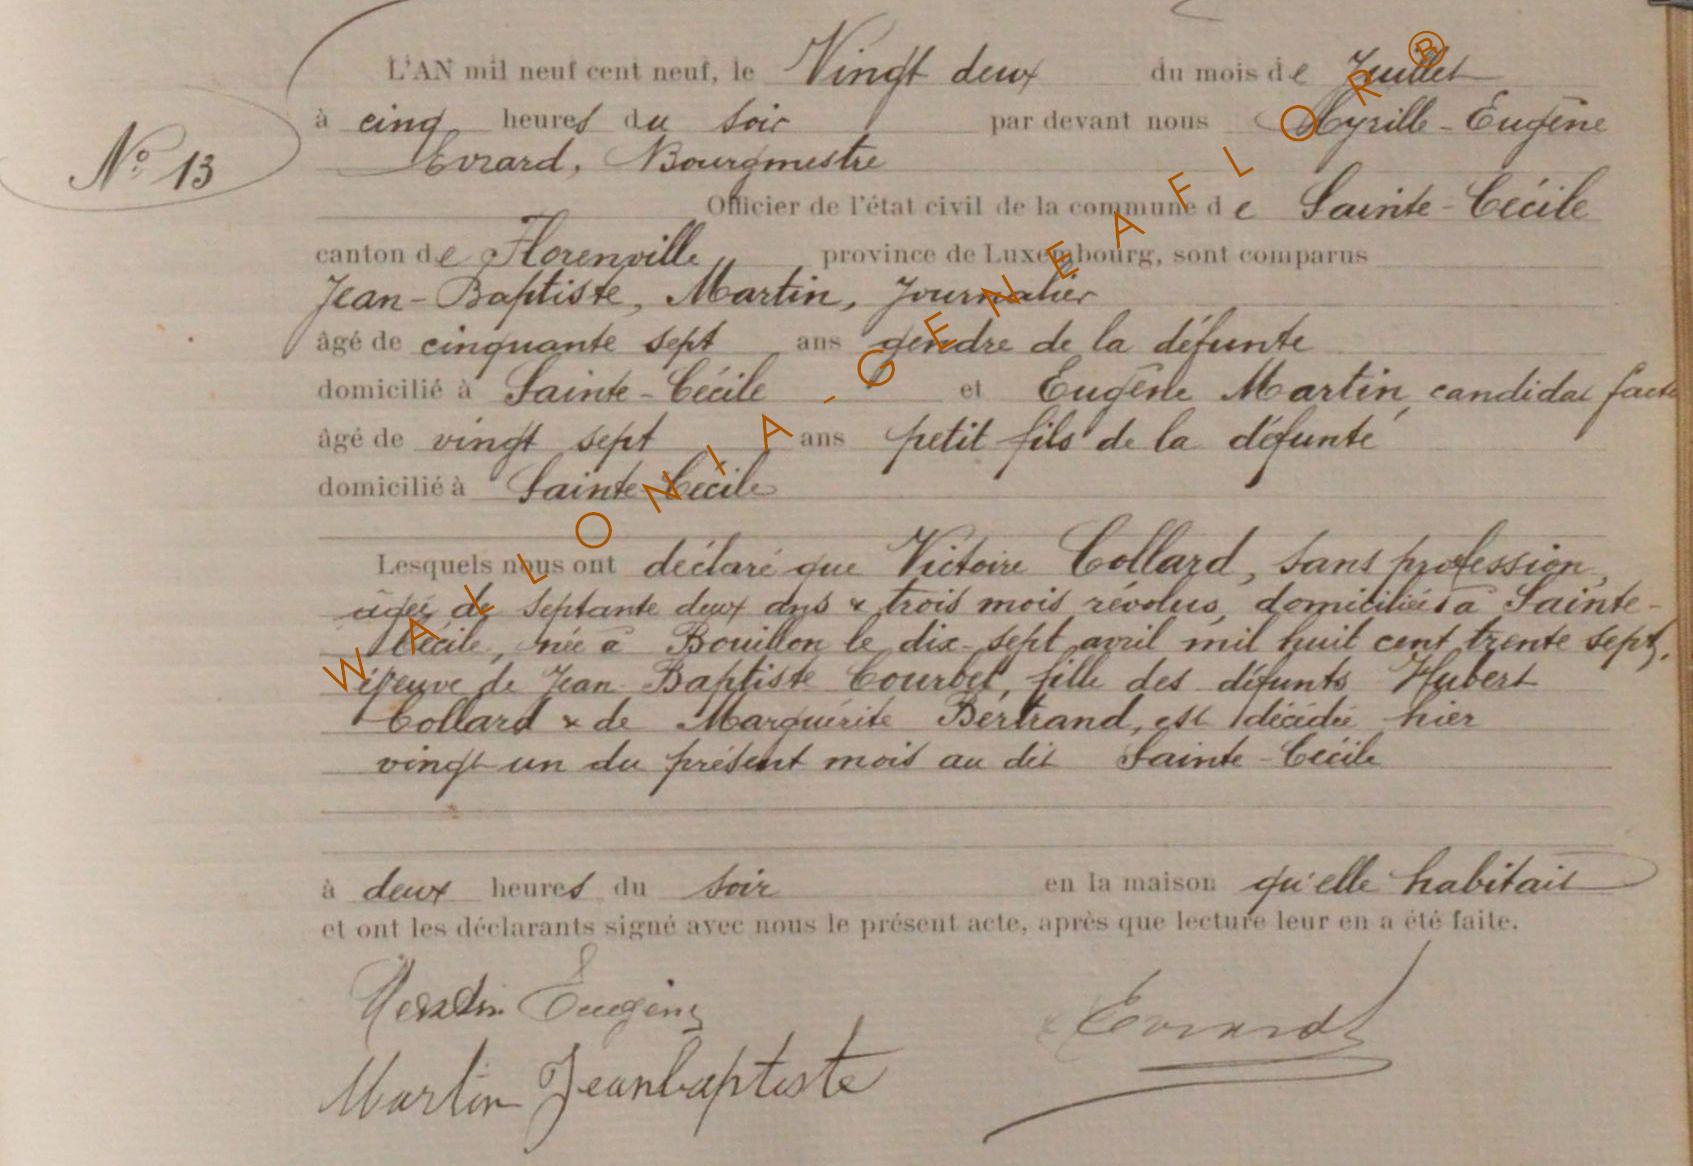 L'AN mil neuf cent neuf, le Vingt deux du mois de Juillet
à cinq heures du soir par devant nous Myrille-Eugène
Evrard, Bourgmestre
N° 13
Officier de l'état civil de la commune de Sainte-Cécile
canton de Florenville province de Luxembourg, sont comparus
Jean-Baptiste, Martin, Journalier
âgé de cinquante sept ans gendre de la défunte
domicilié à Sainte-Cécile et Eugène Martin, candidat
âgé de vingt sept ans petit fils de la défunte
domicilié à Sainte-Cécile
Lesquels nous ont déclaré que Victoire Collard, sans profession,
âgée de septante deux ans & trois mois révolus, domiciliée à Sainte-
Cécile, née à Bouillon le dix-sept avril mil huit cent trente sept,
épeuve de Jean Baptiste Courbet, fille des défunts Hubert
Collard & de Marguérite Bertrand, est décédée hier
vingt-un du présent mois au dit Sainte-Cécile
à deux heures du soir en la maison qu'elle habitait
et ont les déclarants signé avec nous le présent acte, après que lecture leur en a été faite.
Martin Eugène
Evrard
Martin Jeanbaptiste
WALLONIA-GENEAFLOR®